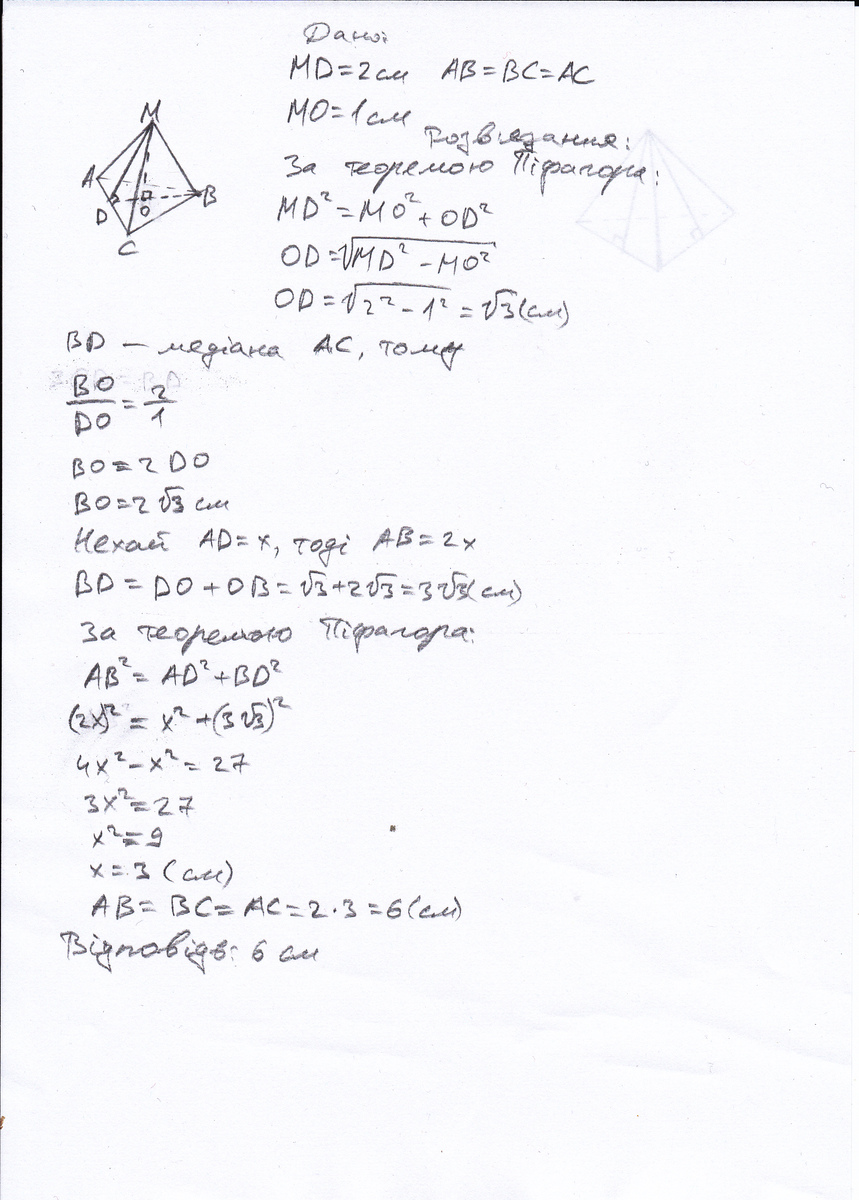 Дано:
MD=2см AB=BC=AC
MO=1см
Розвязання:
За теоремою Піфагора:
MD²=MO²+OD²
OD=√MD²-MO²
OD=√2²-1²=√3(см)
M
A
B
D
O
C
BD – медіана AC, тому
BO/DO=2/1
BO=2DO
BO=2√3см
Нехай AD=x, тоді AB=2x
BD=DO+OB=√3+2√3=3√3(см)
За теоремою Піфагора:
AB²=AD²+BD²
(2x)²=x²+(3√3)²
4x²-x²=27
3x²=27
x²=9
x=3(см)
AB=BC=AC=2·3=6(см)
Відповідь: 6 см